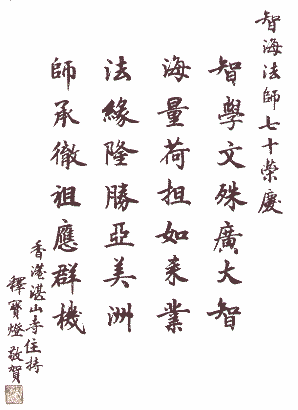 智海法師七十榮慶
智學文殊廣大智
海量荷担如来業
法緣隆勝亞美洲
師承徹祖應群機
香港湛山寺住持
釋寶燈敬賀